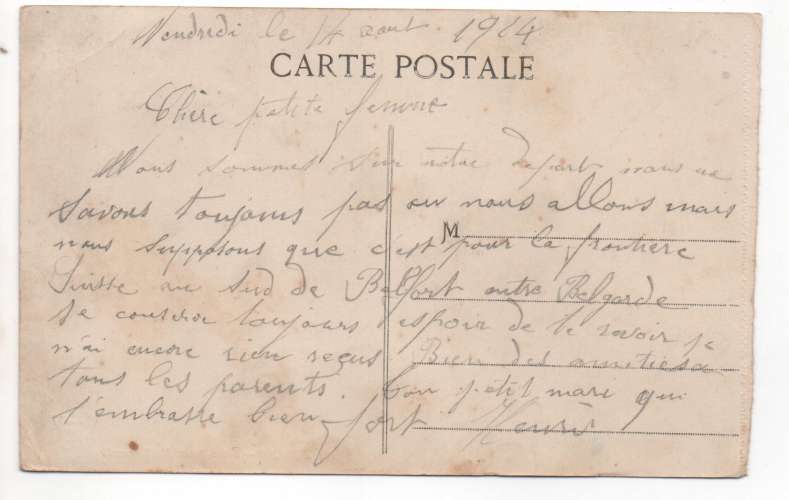 Vendredi le 14 aout 1914
CARTE POSTALE
Chère petite femme
Nous sommes sur notre depart nous ne
savons toujours pas ou nous allons mais
nous supposons que c'est pour la frontiere
M
Suisse au sud de Belfort entre Belgarde
Je conserve toujours espoir de te revoir je
n'ai encore rien reçus Bien des amitiés a
tous les parents. Ton petit mari qui
t'embrasse bien fort Henri